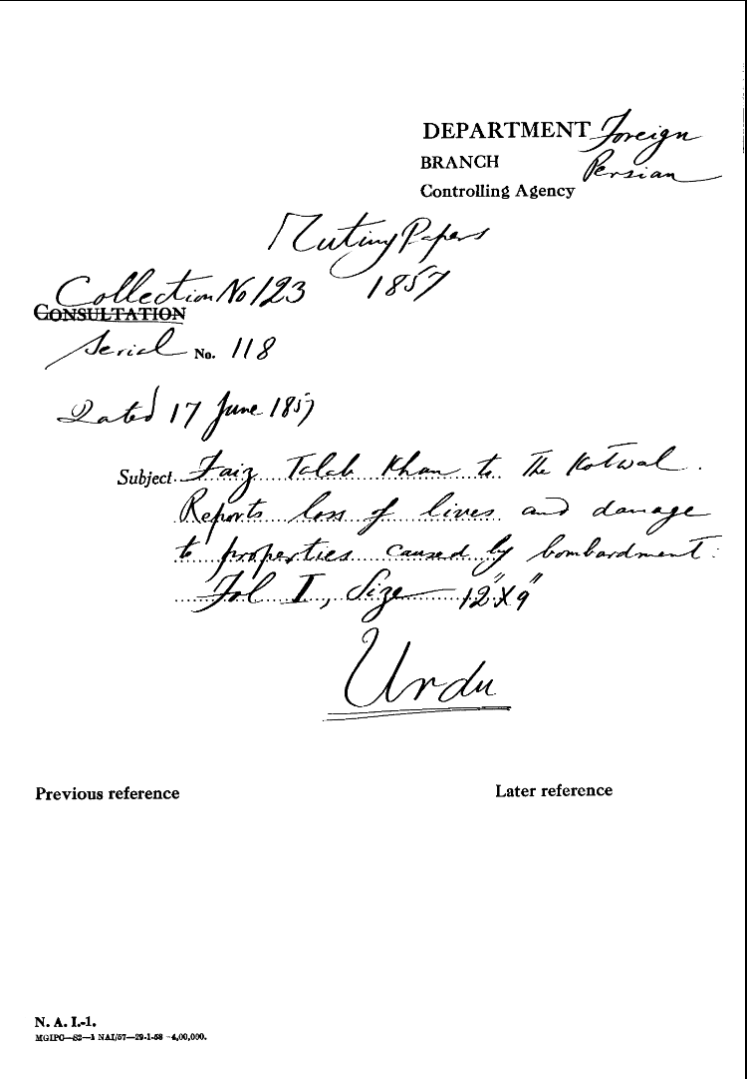 DEPARTMENT Foreign
BRANCH Persian
Controlling Agency
Mutiny Papers
Collection No 123 1857
CONSULTATION
Serial No. 118
Dated 17 June 1857
Subject Faiz Talab Khan to the Kotwal.
Reports loss of lives and damage
to properties caused by bombardment.
Fol I, Size 12"X9"
Urdu
Previous reference Later reference
N. A. I.-1.
MGIPC—S2—1 NAI/57—29-1-58—4,00,000.